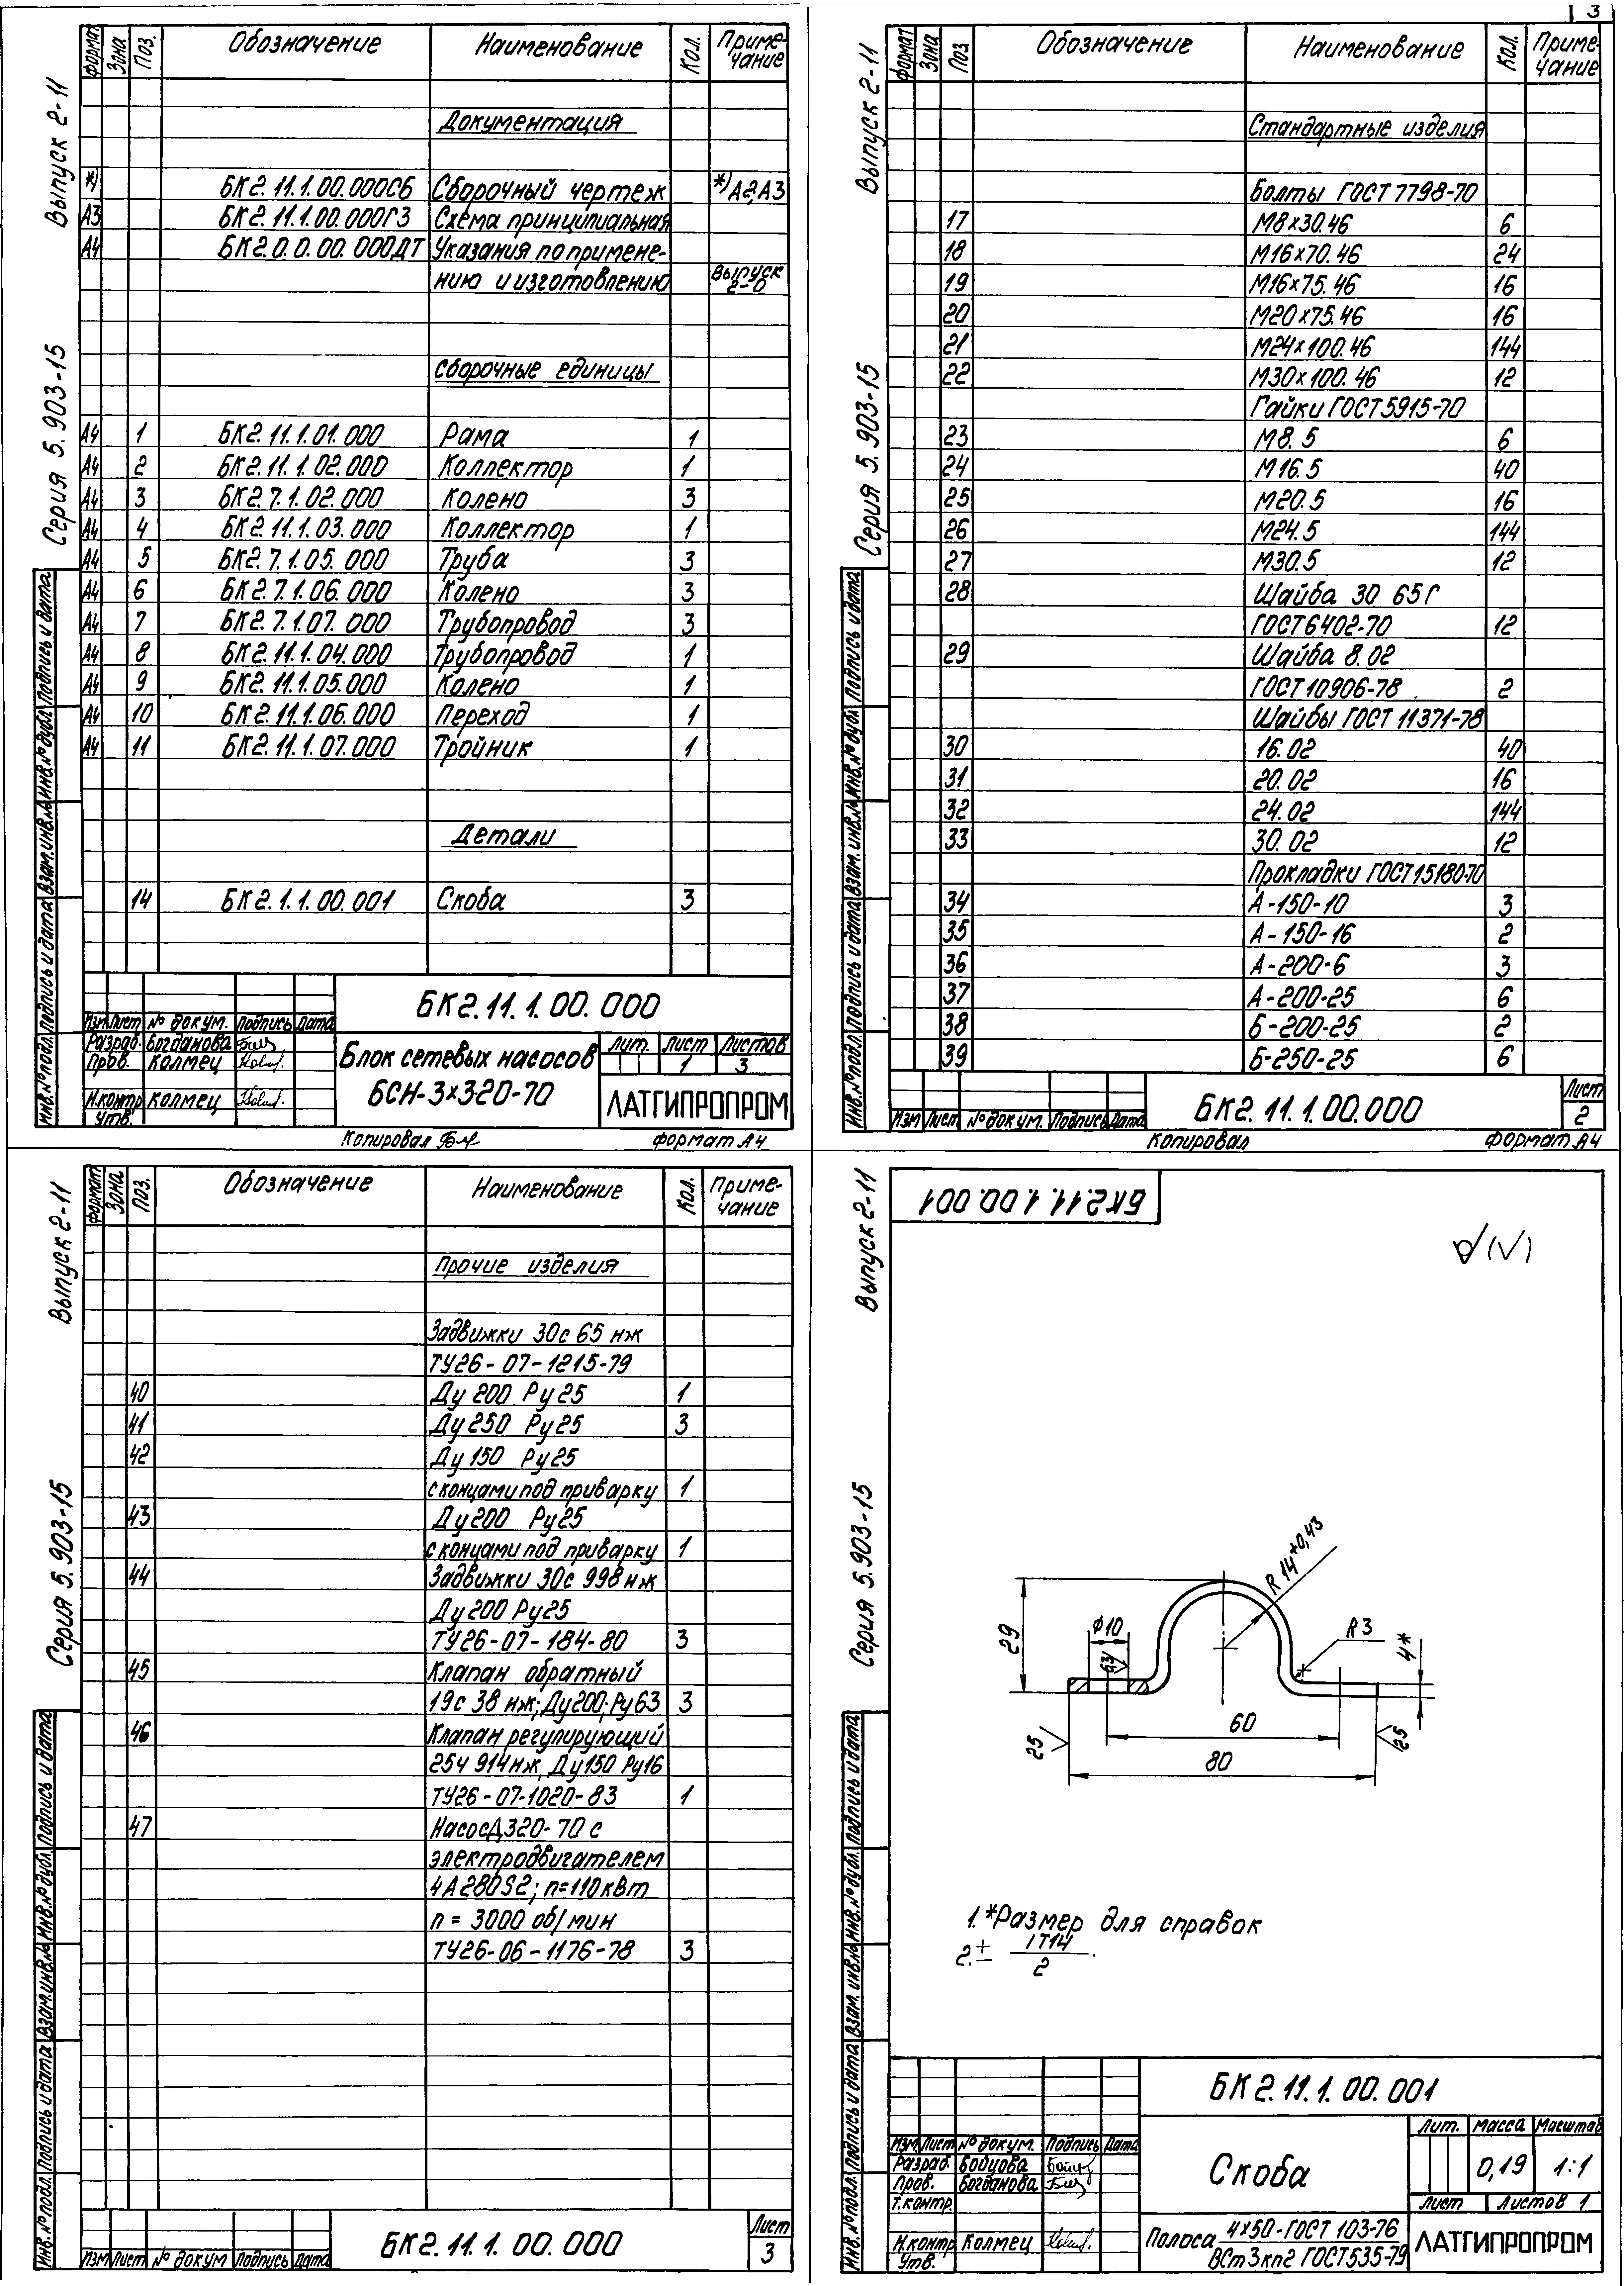 3
Выпуск 2-11
Серия 5.903-15
Формат Зона Поз. Обозначение Наименование Кол. Примечание
Документация
*) БК2.11.1.00.000СБ Сборочный чертеж *) А2,А3
А3 БК2.11.1.00.000Г3 Схема принципиальная
А4 БК2.0.0.00.000ДТ Указания по примене-
нию и изготовлению Выпуск 2-0
Сборочные единицы
А4 1 БК2.11.1.01.000 Рама 1
А4 2 БК2.11.1.02.000 Коллектор 1
А4 3 БК2.7.1.02.000 Колено 3
А4 4 БК2.11.1.03.000 Коллектор 1
А4 5 БК2.7.1.05.000 Труба 3
А4 6 БК2.7.1.06.000 Колено 3
А4 7 БК2.7.1.07.000 Трубопровод 3
А4 8 БК2.11.1.04.000 Трубопровод 1
А4 9 БК2.11.1.05.000 Колено 1
А4 10 БК2.11.1.06.000 Переход 1
А4 11 БК2.11.1.07.000 Тройник 1
Детали
14 БК2.1.1.00.001 Скоба 3
Инв.№подл. Подпись и дата Взам.инв.№ Инв.№дубл. Подпись и дата
БК2.11.1.00.000
Изм Лист № докум. Подпись Дата
Разраб. Богданова
Пров. Колмец
Н.контр Колмец
Утв.
Блок сетевых насосов
БСН-3×320-70
Лит. Лист Листов
1 3
ЛАТГИПРОПРОМ
Копировал Формат А4
Выпуск 2-11
Серия 5.903-15
Формат Зона Поз Обозначение Наименование Кол. Примечание
Стандартные изделия
Болты ГОСТ 7798-70
17 М8×30.46 6
18 М16×70.46 24
19 М16×75.46 16
20 М20×75.46 16
21 М24×100.46 144
22 М30×100.46 12
Гайки ГОСТ5915-70
23 М8.5 6
24 М16.5 40
25 М20.5 16
26 М24.5 144
27 М30.5 12
28 Шайба 30 65Г
ГОСТ6402-70 12
29 Шайба 8.02
ГОСТ10906-78 2
Шайбы ГОСТ 11371-78
30 16.02 40
31 20.02 16
32 24.02 144
33 30.02 12
Прокладки ГОСТ15180-70
34 А-150-10 3
35 А-150-16 2
36 А-200-6 3
37 А-200-25 6
38 Б-200-25 2
39 Б-250-25 6
Инв.№подл. Подпись и дата Взам.инв.№ Инв.№дубл Подпись и дата
Изм Лист № докум. Подпись Дата
БК2.11.1.00.000
Лист
2
Копировал Формат А4
Выпуск 2-11
Серия 5.903-15
Формат Зона Поз. Обозначение Наименование Кол. Примечание
Прочие изделия
Задвижки 30с 65 нж
ТУ26-07-1215-79
40 Ду 200 Ру 25 1
41 Ду 250 Ру 25 3
42 Ду 150 Ру25
с концами под приварку 1
43 Ду200 Ру25
с концами под приварку 1
44 Задвижки 30с 998 нж
Ду 200 Ру25
ТУ26-07-184-80 3
45 Клапан обратный
19с 38 нж; Ду200; Ру63 3
46 Клапан регулирующий
25ч 914нж, Ду150 Ру16
ТУ26-07-1020-83 1
47 Насос Д320-70 с
электродвигателем
4А280S2; n=110кВт
n = 3000 об/мин
ТУ26-06-1176-78 3
Инв.№подл. Подпись и дата Взам.инв.№ Инв.№дубл. Подпись и дата
Изм Лист № докум Подпись Дата
БК2.11.1.00.000
Лист
3
Выпуск 2-11
Серия 5.903-15
БК2.11.1.00.001
(√)
R 14+0,43
29
φ10
63
R3
4*
60
80
25
25
1.*Размер для справок
2. ± IT14/2
Инв.№подл. Подпись и дата Взам.инв.№ Инв.№дубл. Подпись и дата
БК2.11.1.00.001
Изм Лист № докум. Подпись Дата
Разраб. Бойцова
Пров. Богданова
Т.контр.
Н.контр Колмец
Утв.
Скоба
Лит. Масса Масштаб
0,19 1:1
Лист Листов 1
Полоса 4×50-ГОСТ 103-76
ВСт3кп2 ГОСТ535-79
ЛАТГИПРОПРОМ